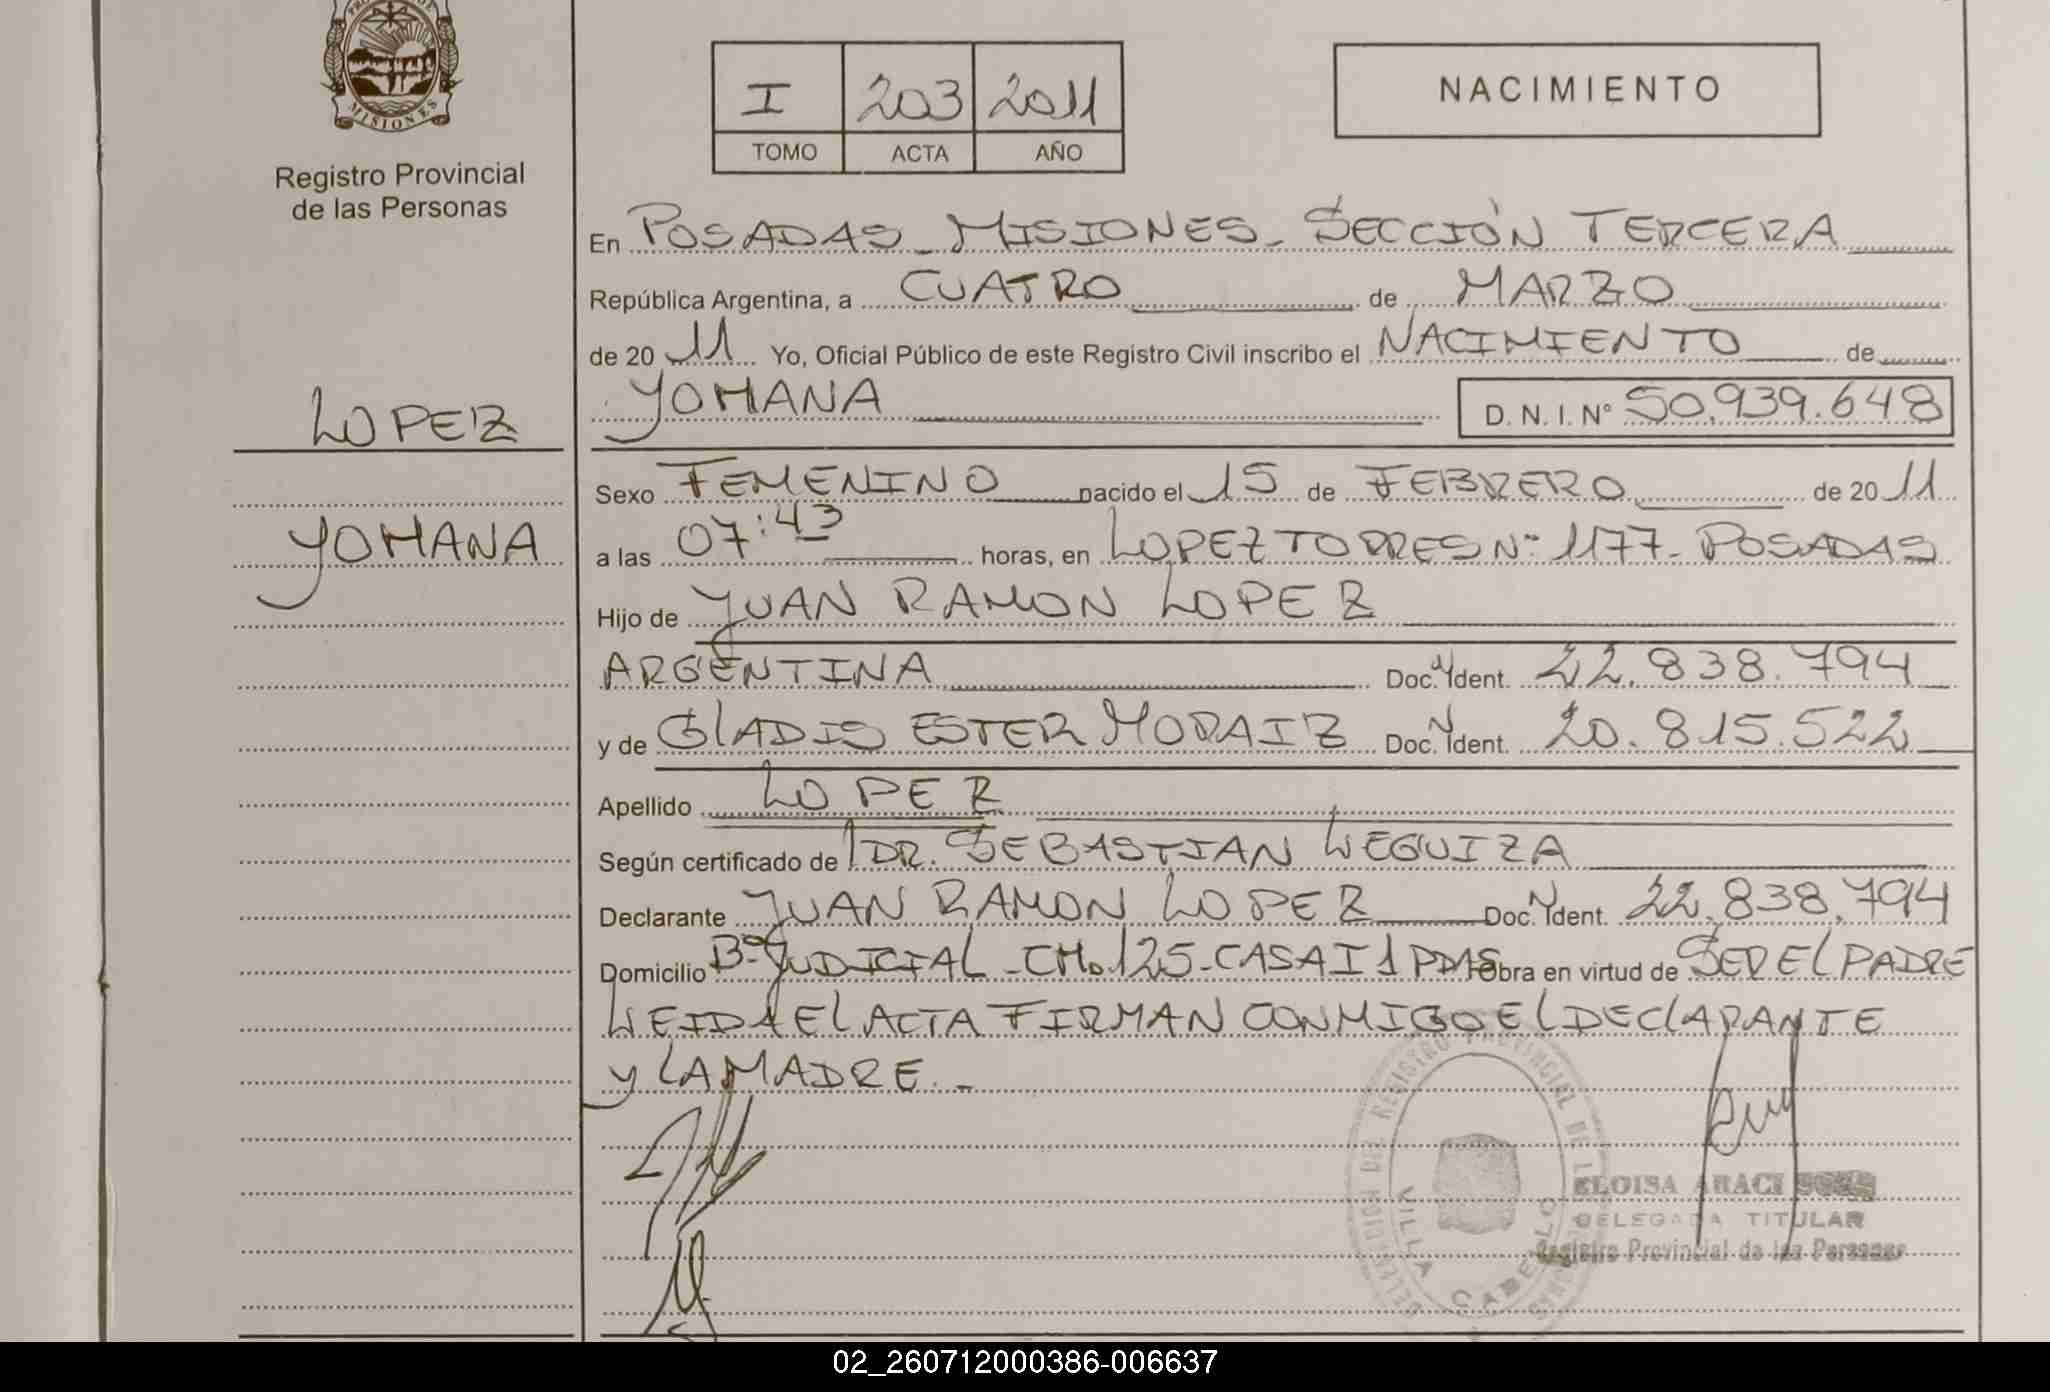 PROVINCIA DE
MISIONES
Registro Provincial
de las Personas
I 203 2011
TOMO ACTA AÑO
NACIMIENTO
En POSADAS - MISIONES - SECCIÓN TERCERA
República Argentina, a CUATRO de MARZO
de 20 11 Yo, Oficial Público de este Registro Civil inscribo el NACIMIENTO de
LOPEZ
YOHANA
YOHANA D. N. I. Nº 50.939.648
Sexo FEMENINO nacido el 15 de FEBRERO de 20 11
a las 07:43 horas, en LOPEZ TORRES Nº 1177 - POSADAS
Hijo de JUAN RAMON LOPEZ
ARGENTINA Doc. Ident. 22.838.794
y de GLADIS ESTER MORAIZ Doc. Ident. 20.815.522
Apellido LOPEZ
Según certificado de DR. SEBASTIAN LEGUIZA
Declarante JUAN RAMON LOPEZ Doc. Ident. 22.838.794
Domicilio Bº JUDICIAL - CH. 125 - CASA I 1 PDAS Obra en virtud de SER EL PADRE
LEIDA EL ACTA FIRMAN CONMIGO EL DECLARANTE
y LA MADRE. -
REGISTRO PROVINCIAL DE
VILLA CABELLO
ELOISA ARACI
DELEGADA TITULAR
Registro Provincial de las Personas
02_260712000386-006637